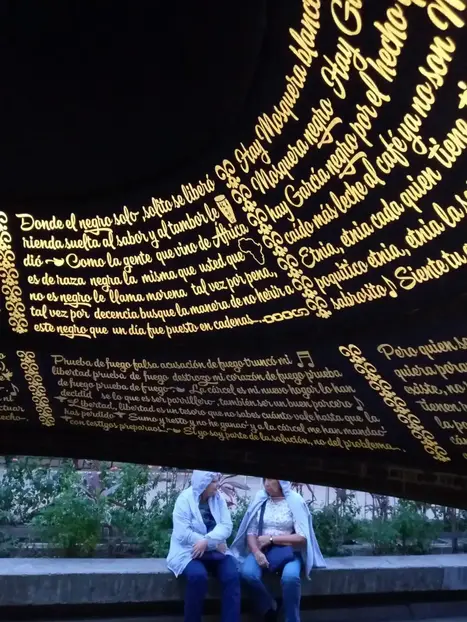 Hay Mosquera blanco
Mosquera negro Hay
hay García negro por el hecho
caído más leche al café ya no son
Etnia, etnia cada quien tiene
poquitico etnia, etnia la
sabrosito Siente tu
Donde el negro solo solito se liberó
rienda suelta al sabor y al tambor le
dió Como la gente que vino de África
es de raza negra la misma que usted que
no es negro le llama morena tal vez por pena,
tal vez por decencia busque la manera de no herir a
este negro que un día fue puesto en cadenas
Prueba de fuego falsa acusación de fuego truncó mi
libertad prueba de fuego destrozo mi corazón de fuego prueba
de fuego prueba de fuego La cárcel es mi nuevo hogar lo han
decidid se lo que es ser parrillero también ser un buen parcero
Libertad, libertad es un tesoro que no sabes cuánto vale hasta que la
has perdido Sumo y resto y no he ganao y a la cárcel me han mandao
con testigos preparaos Si yo soy parte de la solución, no del problema
Pero quien
quiera por
existo, no
tienen
la po
que